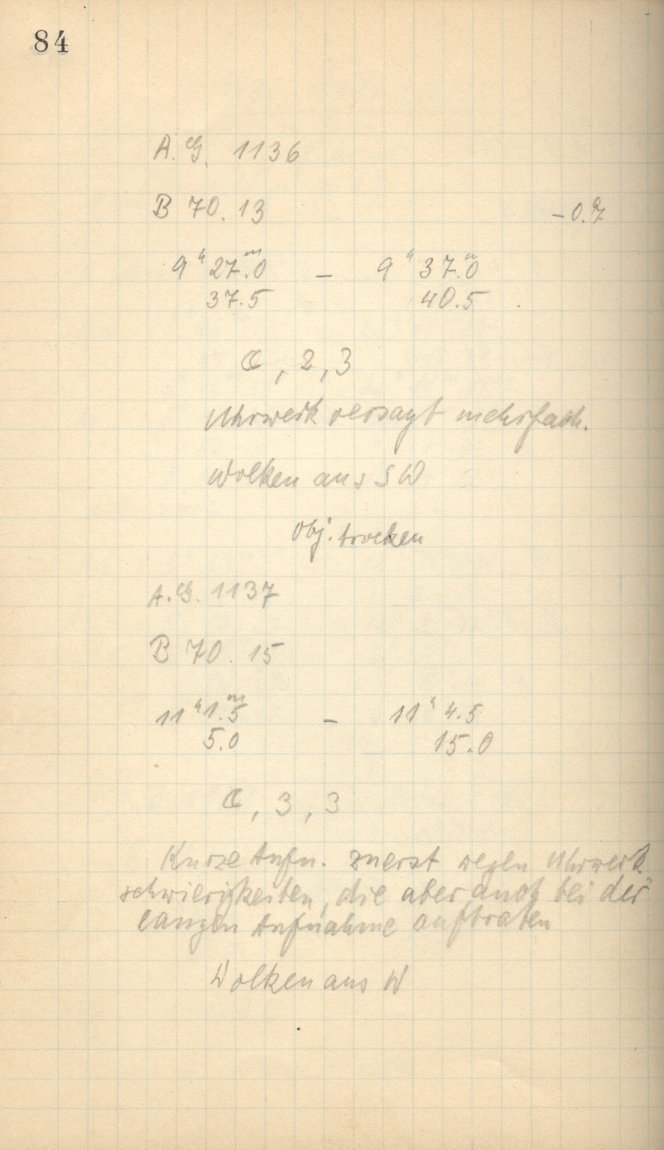 84
A.G. 1136
B 70.13 -0.7
9ʰ27ᵐ.0 – 9ʰ37ᵐ.0
37.5 40.5
, 2, 3
Uhrwerk versagt mehrfach.
Wolken aus SW
Obj. trocken
A.G. 1137
B 70.15
11ʰ1ᵐ.5 – 11ʰ4.5
5.0 15.0
, 3, 3
Kurze Aufn. zuerst wegen Uhrwerk
schwierigkeiten, die aber auch bei der
langen Aufnahme auftraten
Wolken aus W